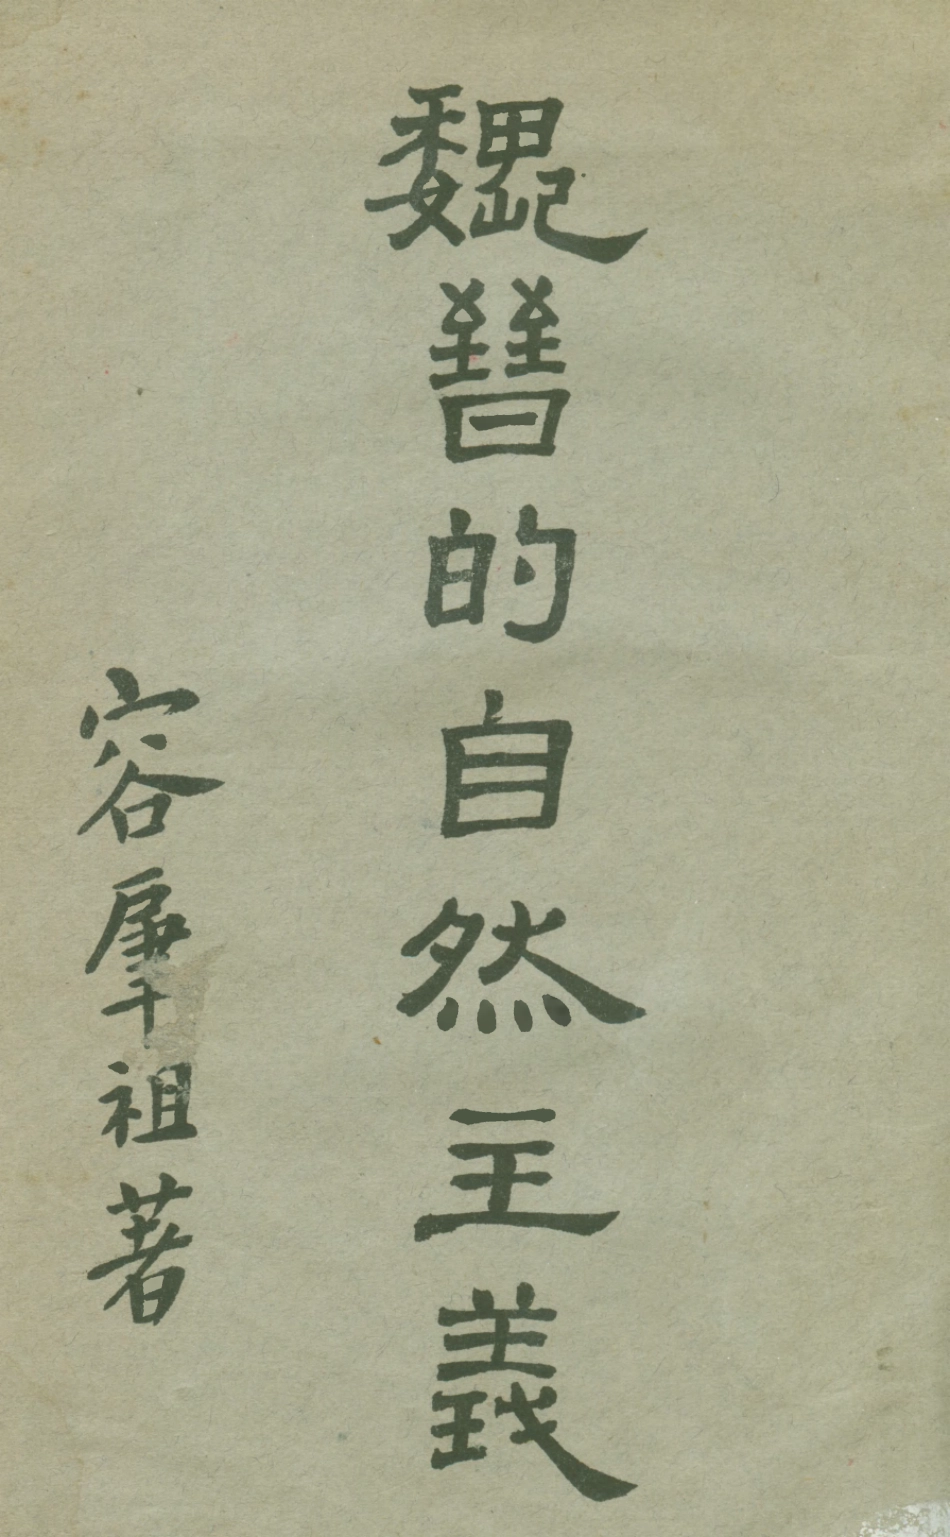 魏晉的自然主義
容肇祖著